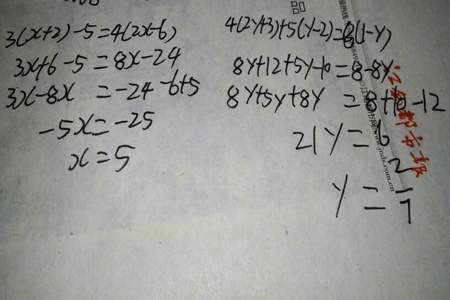 3(x+2)-5=4(2x-6)
3x+6-5=8x-24
3x-8x=-24-6+5
-5x=-25
x=5
4(2y+3)+5(y-2)=8(1-y)
8y+12+5y-10=8-8y
8y+5y+8y=8+10-12
21y=6
y=2/7
品
江
都市报